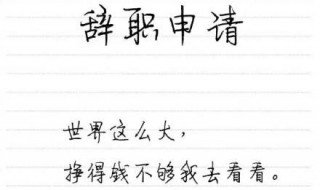 辞职申请
世界这么大，
挣得钱不够我去看看。